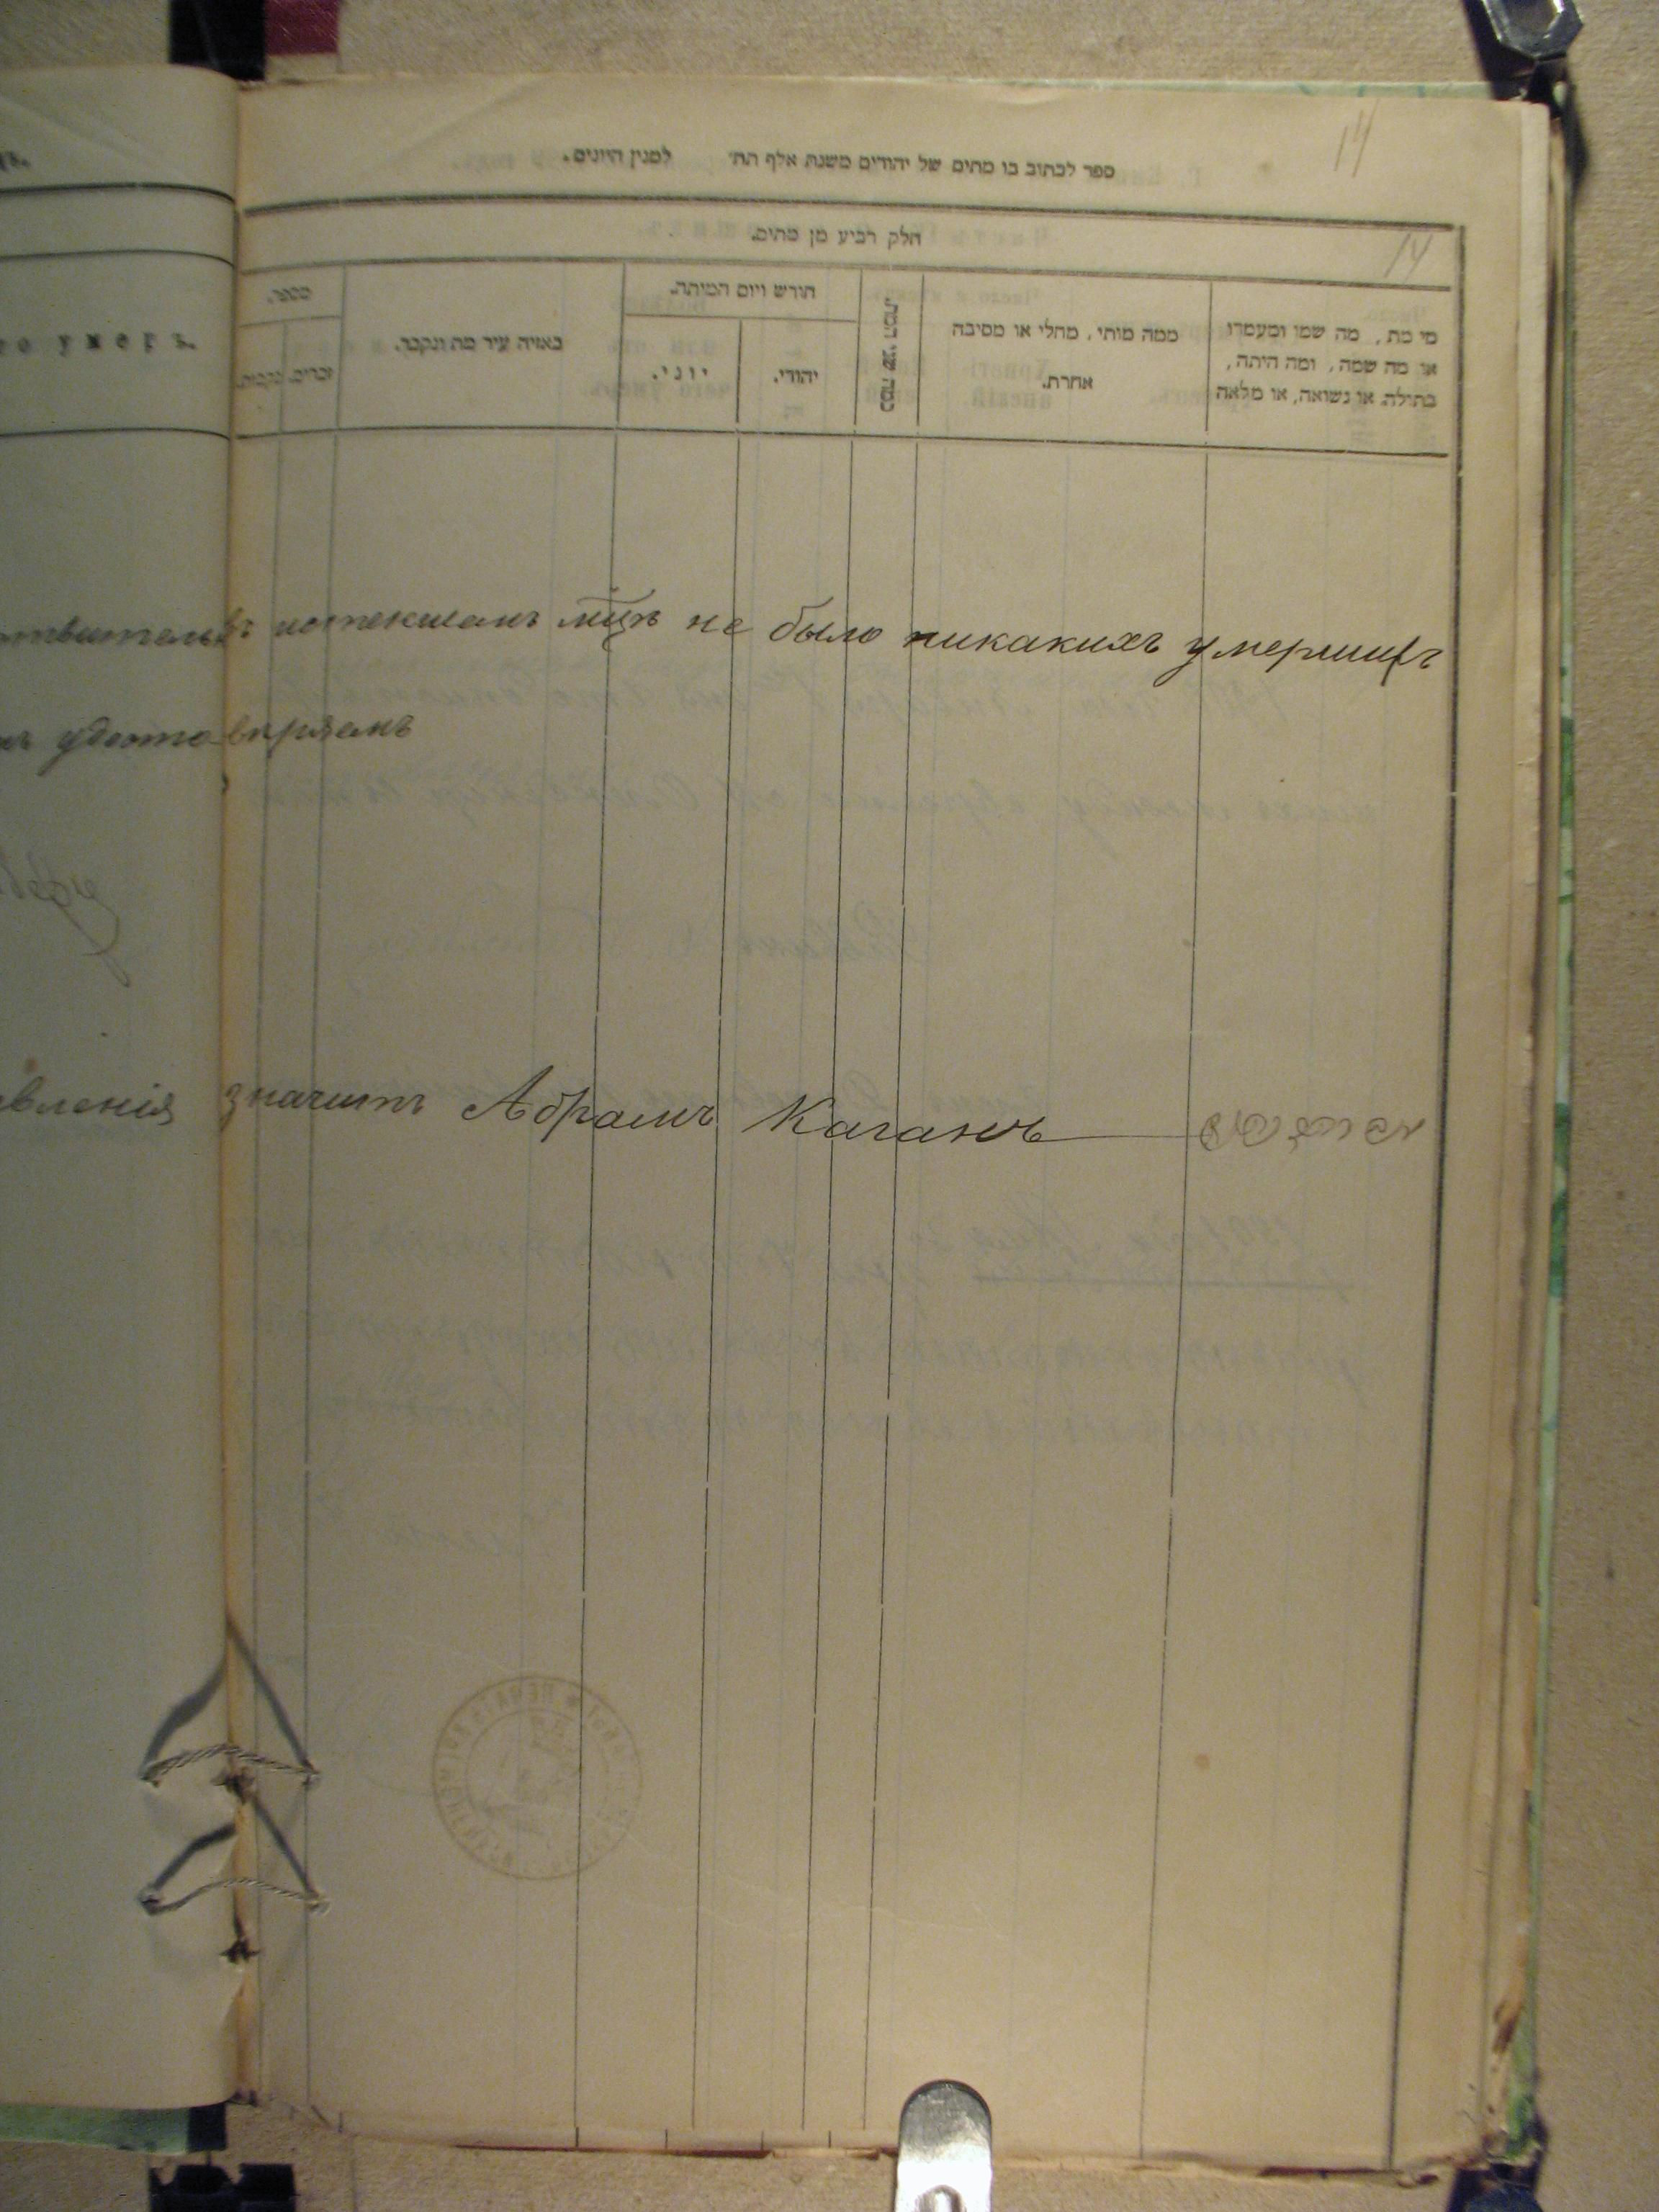 14
ספר לכתוב בו מתים של יהודים משנת אלף תת׳ למנין היונים.
חלק רביע מן מתים.
14
מי מת, מה שמו ומעמדו
או מה שמה, ומה היתה,
בתולה או נשואה, או מלאה
ממה מותי, מחלי או מסיבה
אחרת.
כמה שני המת.
חודש ויום המיתה.
יהודי.
יוני.
באיזה עיר מת ונקבר.
מספר.
זכרים.
נקבות.
умеръ.
истекшемъ мцѣ не было никакихъ умершихъ
удостовѣряемъ
значитъ Абрамъ Каганъ